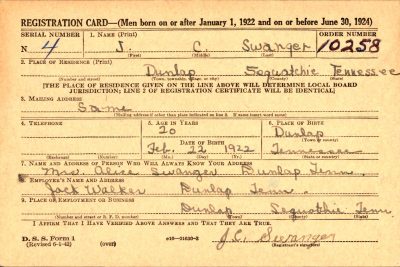 REGISTRATION CARD—(Men born on or after January 1, 1922 and on or before June 30, 1924)
SERIAL NUMBER 1. NAME (Print) ORDER NUMBER
N 4 J. C. Swanger 10258
(First) (Middle) (Last)
2. PLACE OF RESIDENCE (Print)
Dunlap Sequatchie Tennessee
(Number and street) (Town, township, village, or city) (County) (State)
[THE PLACE OF RESIDENCE GIVEN ON THE LINE ABOVE WILL DETERMINE LOCAL BOARD
JURISDICTION; LINE 2 OF REGISTRATION CERTIFICATE WILL BE IDENTICAL]
3. MAILING ADDRESS
Same
(Mailing address if other than place indicated on line 2. If same insert word same)
4. TELEPHONE 5. AGE IN YEARS 6. PLACE OF BIRTH
20 Dunlap
DATE OF BIRTH (Town or county)
Feb. 22 1922 Tennessee
(Exchange) (Number) (Mo.) (Day) (Yr.) (State or country)
7. NAME AND ADDRESS OF PERSON WHO WILL ALWAYS KNOW YOUR ADDRESS
Mrs. Alice Swanger Dunlap Tenn.
8. EMPLOYER'S NAME AND ADDRESS
Jack Walker Dunlap Tenn.
9. PLACE OF EMPLOYMENT OR BUSINESS
Dunlap Sequathie Tenn.
(Number and street or R. F. D. number) (Town) (County) (State)
I AFFIRM THAT I HAVE VERIFIED ABOVE ANSWERS AND THAT THEY ARE TRUE.
D. S. S. Form 1
(Revised 6-1-42) (over) J.C. Swanger
(Registrant's signature)